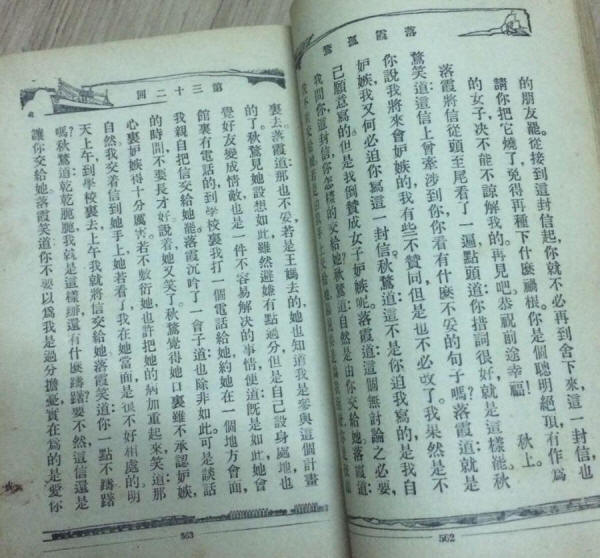 落霞孤鶩
的朋友罷。從接到這封信起，你就不必再到舍下來，這一封信，也
請你把它燒了，免得再種下什麼禍根。你是個聰明絕頂，有作爲
的女子，决不能不諒解我的。再見吧，恭祝前途幸福！　秋上。
落霞將信從頭至尾看了一遍，點頭道：你措詞很好，就是這樣罷。秋
鶩笑道：這信上曾牽涉到你，你看有什麼不妥的句子嗎？落霞道：就是
你說我將來會妒嫉的，我有些不贊同，但是也不必改了。我果然是不
妒嫉，我又何必迫你寫這一封信。秋鶩道：這不是你迫我寫的，是我自
己願意寫的。但是我倒贊成女子妒嫉呢。落霞道：這個無討論之必要，
我問你這封信，你怎樣的交給她？秋鶩道：自然是由你交給她。落霞道：
562
第三十二回
裏去。落霞道：那也不妥，若是王媽去的，她也知道我是參與這個計畫
的了。秋鶩見她設想如此，雖然避嫌有點過分，但是自己設身處地，也
覺好友變成情敵，也是一件不容易解決的事情，便道：既是如此，她會
館裏有電話的，到學校裏我打一個電話給她，約她在一個地方會面，
我親自把信交給她罷。落霞沉吟了一會子道：也除非如此，可是談話
的時間不要長才好。說着，她又笑了。秋鶩覺得她口裏雖不承認妒嫉，
心裏妒嫉得十分厲害，若不敷衍她，也許把她的病加重起來，笑道：那
自然，我交着信到她手上，她若看了，我在她當面，是很不好相處的。明
天上午到學校裏去，上午我就將信交給她。落霞笑道：你一點不躊躇
嗎？秋鶩道：乾乾脆脆，我就是這樣辦，還有什麼躊躇？要不然，這信還是
讓你交給她。落霞笑道：你不要以爲我是過分擔憂，實在爲的是愛你
563